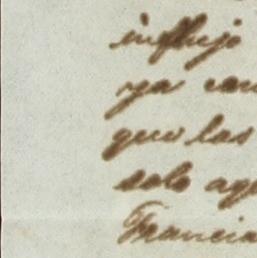 influjo
ya con
que las
solo aqu
Francia